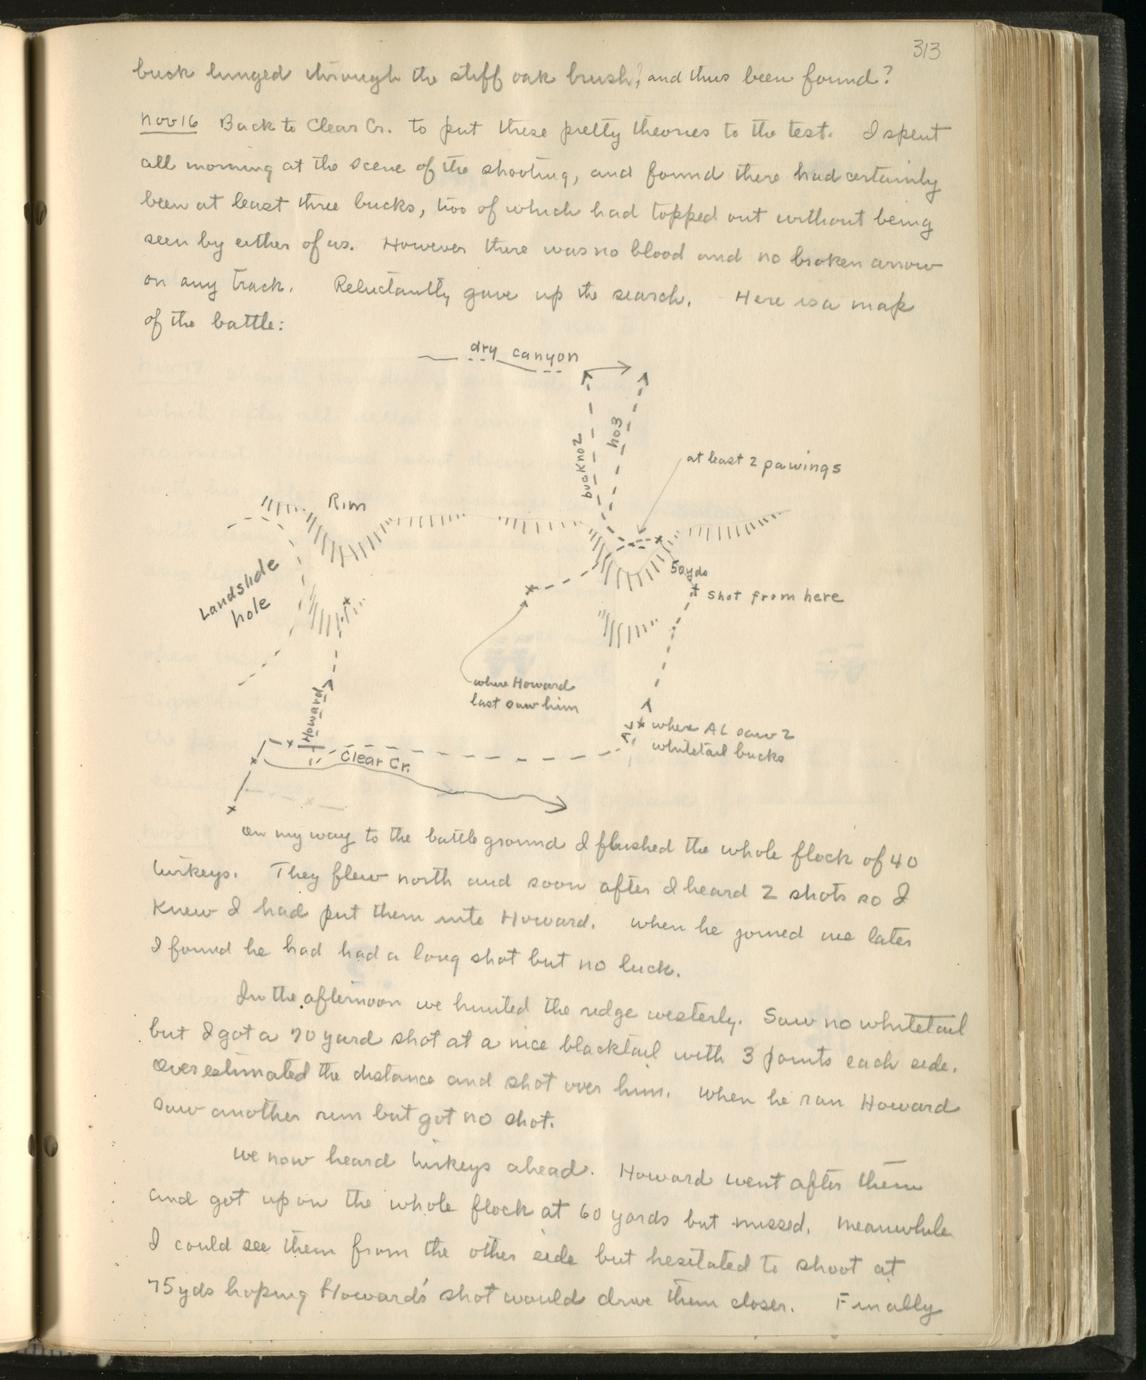 313
buck lunged through the stiff oak brush, and thus been found?
Nov 16 Back to Clear Cr. to put these pretty theories to the test. I spent
all morning at the scene of the shooting, and found there had certainly
been at least three bucks, two of which had topped out without being
seen by either of us. However there was no blood and no broken arrow
on any track. Reluctantly gave up the search. Here is a map
of the battle:
dry canyon
buck no 2
no 3
at least 2 pawings
Rim
Landslide
hole
50 yds
shot from here
where Howard
last saw him
Howard
where AL saw 2
whitetail bucks
Clear Cr.
On my way to the battle ground I flushed the whole flock of 40
turkeys. They flew north and soon after I heard 2 shots so I
knew I had put them into Howard. When he joined me later
I found he had had a long shot but no luck.
In the afternoon we hunted the ridge westerly. Saw no whitetail
but I got a 70 yard shot at a nice blacktail with 3 points each side.
Overestimated the distance and shot over him. When he ran Howard
saw another run but got no shot.
We now heard turkeys ahead. Howard went after them
and got up on the whole flock at 60 yards but missed. Meanwhile
I could see them from the other side but hesitated to shoot at
75 yds hoping Howard's shot would drive them closer. Finally